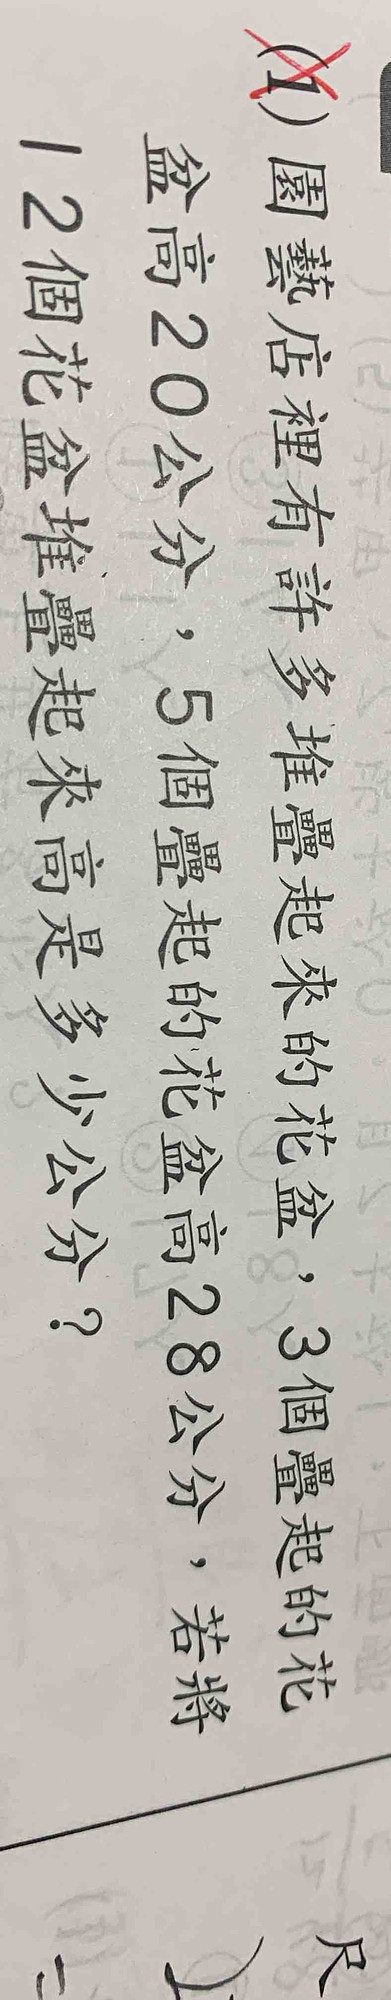 (1)園藝店裡有許多堆疊起來的花盆,3個疊起的花
盆高20公分,5個疊起的花盆高28公分,若將
12個花盆堆疊起來高是多少公分?
尺